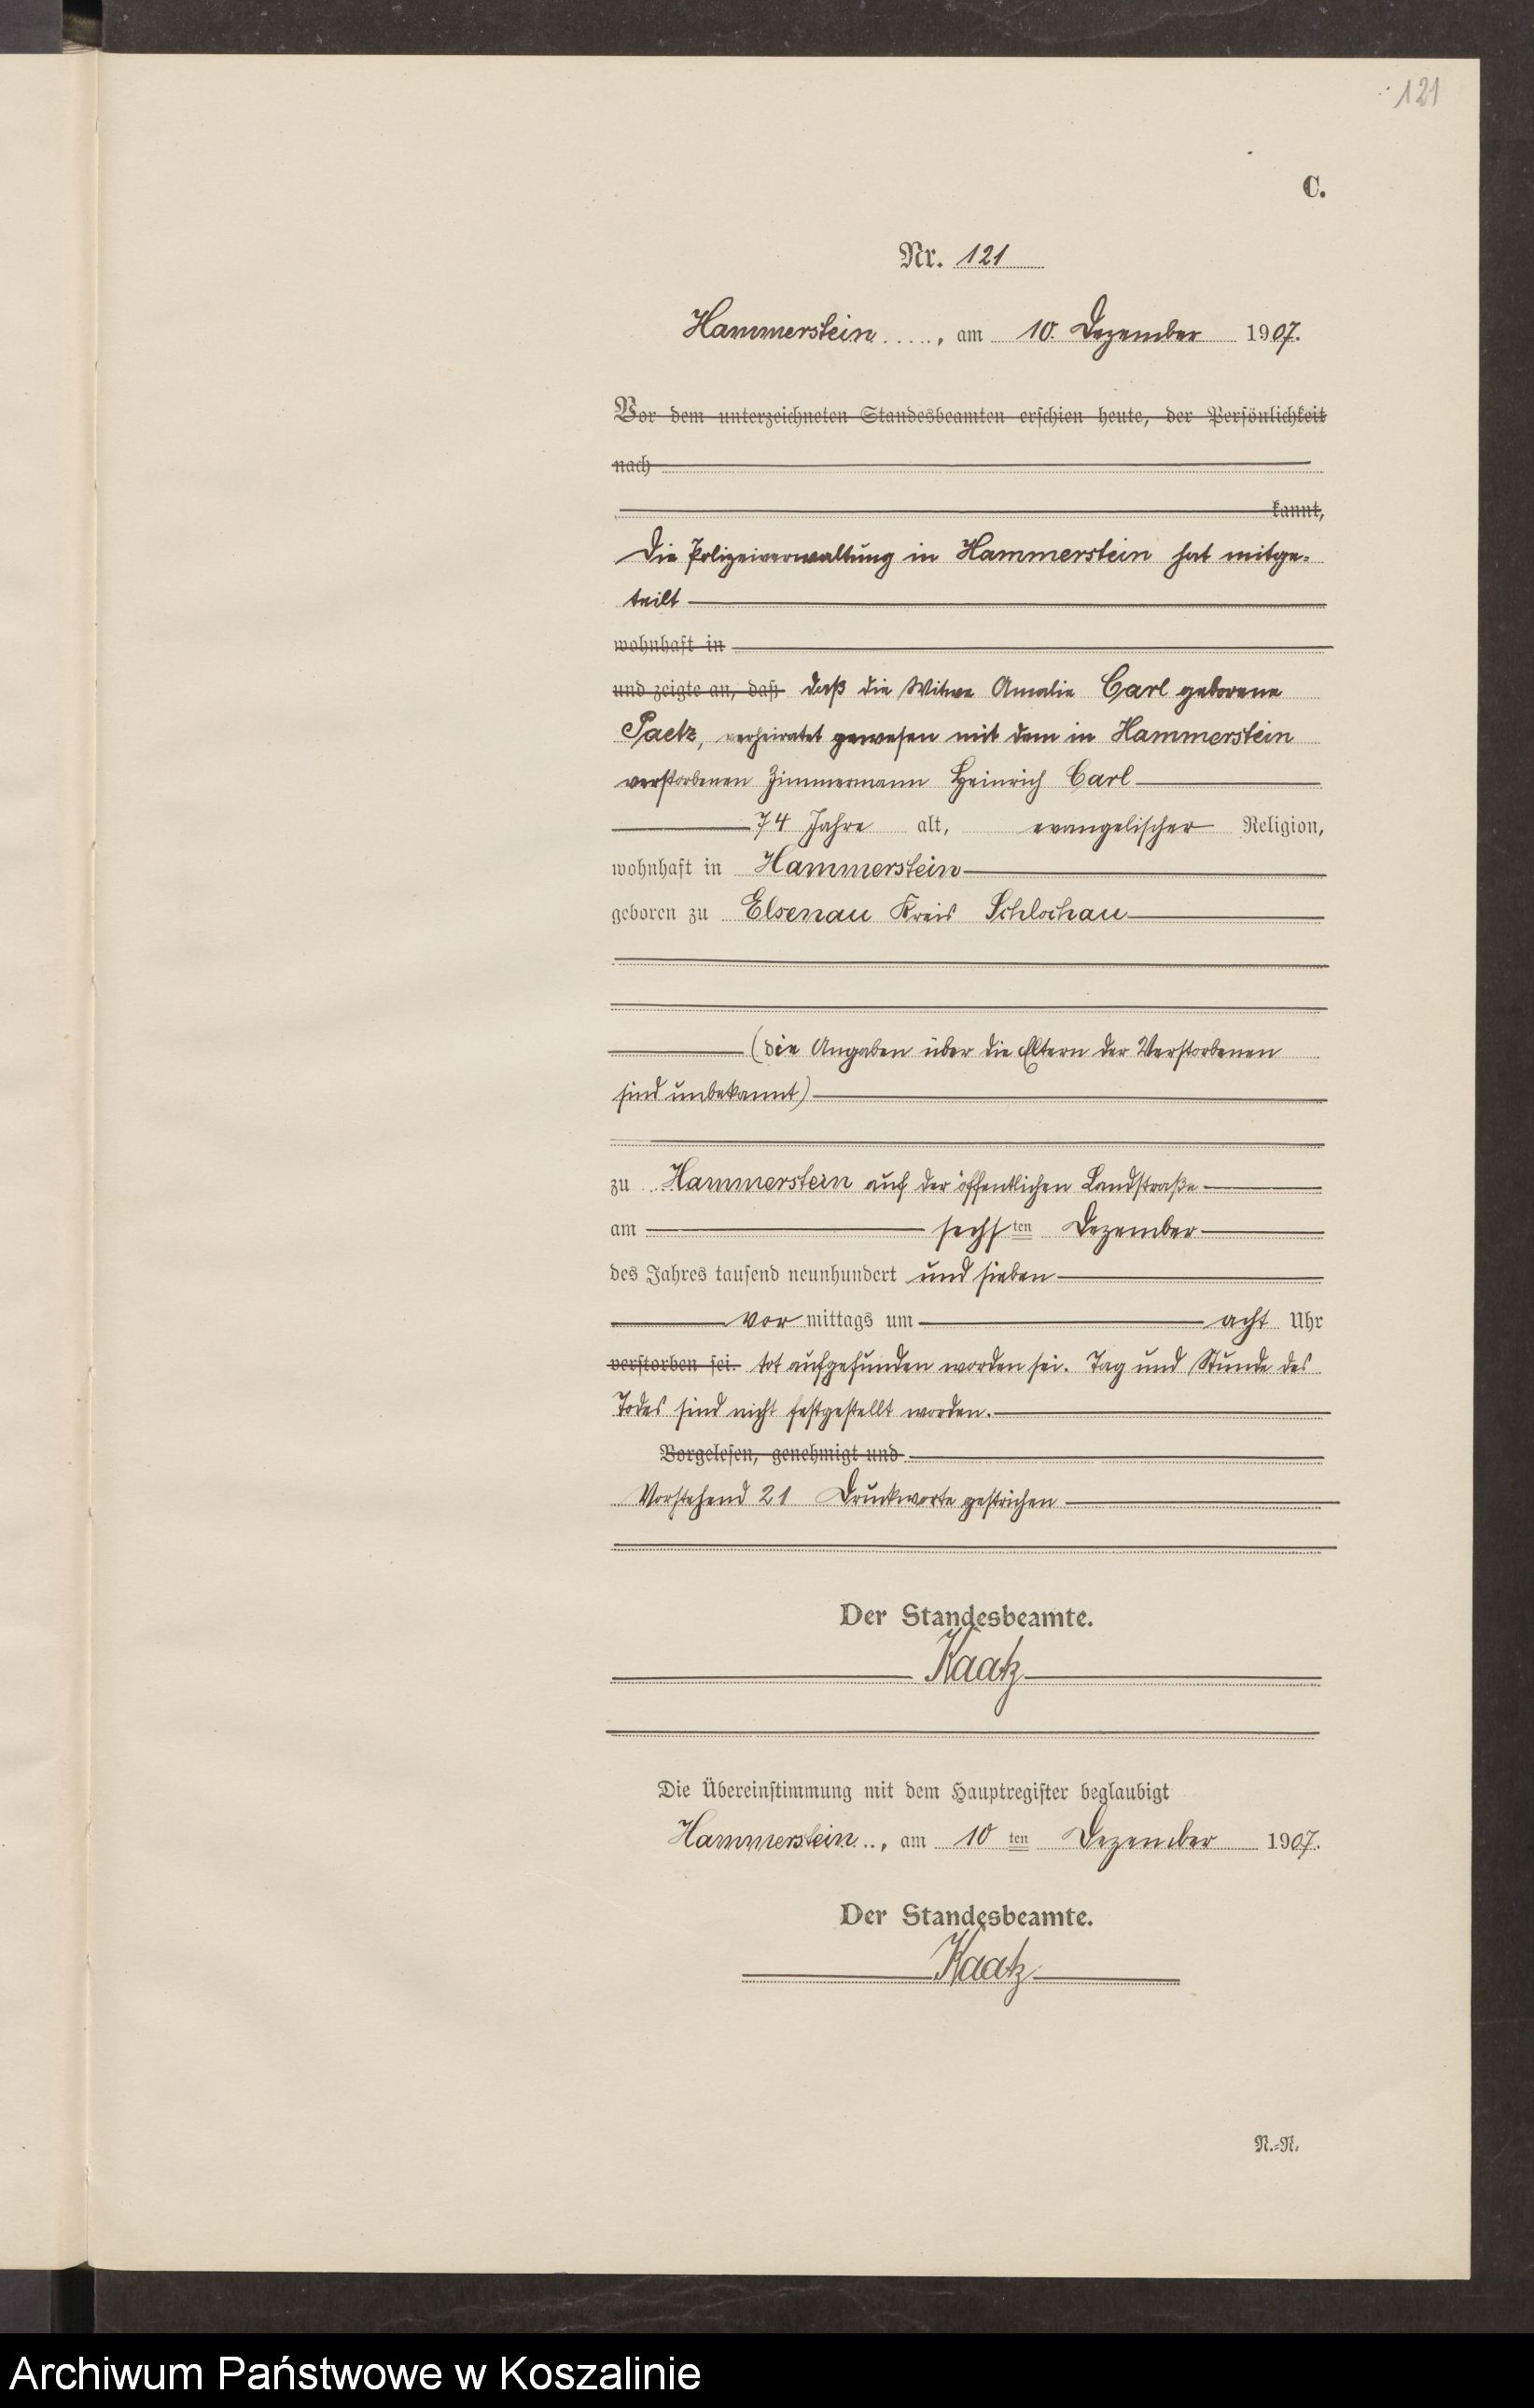 121
C.
Nr. 121
Hammerstein, am 10. Dezember 1907.
Vor dem unterzeichneten Standesbeamten erschien heute, der Persönlichkeit
nach
kannt,
Die Polizeiverwaltung in Hammerstein hat mitge-
teilt
wohnhaft in
und zeigte an, daß daß die Witwe Amalie Carl geborene
Paetz, verheiratet gewesen mit dem in Hammerstein
verstorbenen Zimmermann Heinrich Carl
74 Jahre alt, evangelischer Religion,
wohnhaft in Hammerstein
geboren zu Elsenau Kreis Schlochau
(die Angaben über die Eltern der Verstorbenen
sind unbekannt)
zu Hammerstein auf der öffentlichen Landstraße
am sechsten Dezember
des Jahres tausend neunhundert und sieben
vormittags um acht Uhr
verstorben sei. tot aufgefunden worden sei. Tag und Stunde des
Todes sind nicht festgestellt worden.
Vorgelesen, genehmigt und
Vorstehend 21 Druckworte gestrichen
Der Standesbeamte.
Kaatz
Die Übereinstimmung mit dem Hauptregister beglaubigt
Hammerstein, am 10ten Dezember 1907.
Der Standesbeamte.
Kaatz
N.-R.
Archiwum Państwowe w Koszalinie